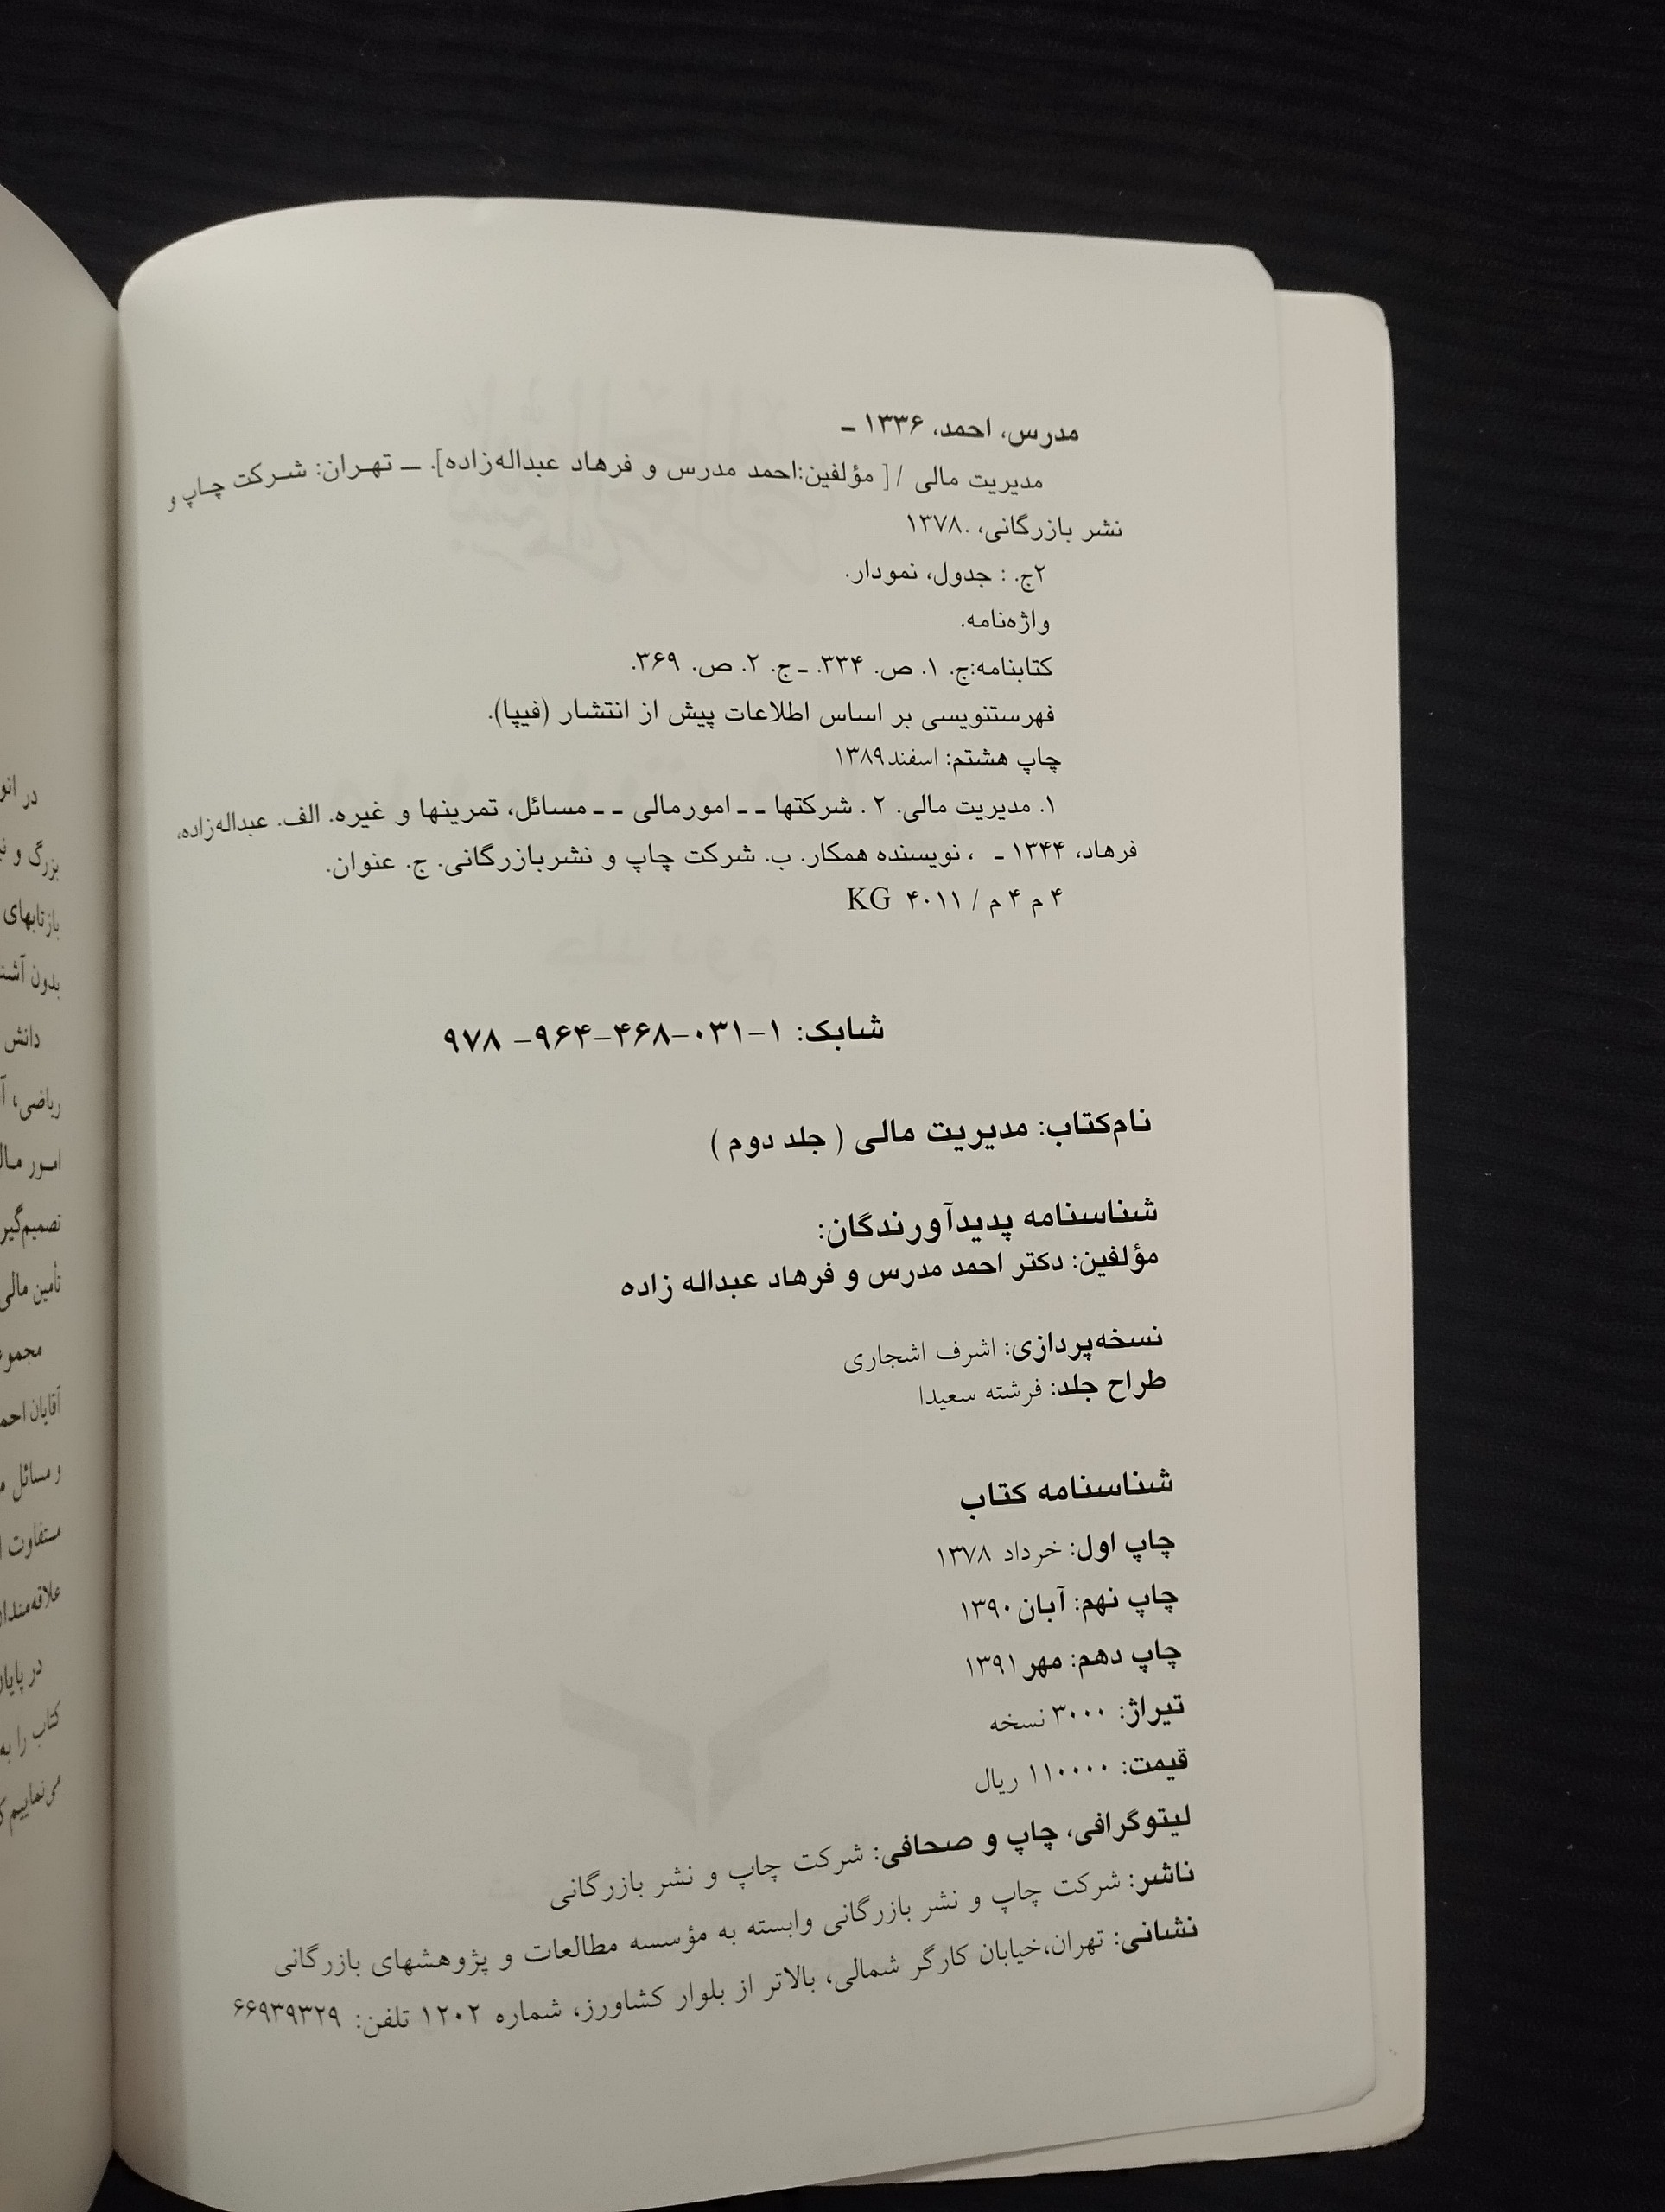 مدرس، احمد، ۱۳۳۶ ـ
مدیریت مالی / [ مؤلفین:احمد مدرس و فرهاد عبداله‌زاده]. ـــ تهـران: شـرکت چـاپ و
نشر بازرگانی، .۱۳۷۸
۲ج. : جدول، نمودار.
واژه‌نامه.
کتابنامه:ج. ۱. ص. ۳۳۴. ـ ج. ۲. ص. ۳۶۹.
فهرستنویسی بر اساس اطلاعات پیش از انتشار (فیپا).
چاپ هشتم: اسفند۱۳۸۹
۱. مدیریت مالی. ۲ . شرکتها ـ ـ امورمالی ـ ـ مسائل، تمرینها و غیره. الف. عبداله‌زاده،
فرهاد، ۱۳۴۴ ـ ، نویسنده همکار. ب. شرکت چاپ و نشربازرگانی. ج. عنوان.
۴ م ۴ م / ۴۰۱۱ KG
شابک: ۱-۰۳۱-۴۶۸-۹۶۴- ۹۷۸
نام‌کتاب: مدیریت مالی ( جلد دوم )
شناسنامه پدیدآورندگان:
مؤلفین: دکتر احمد مدرس و فرهاد عبداله زاده
نسخه‌پردازی: اشرف اشجاری
طراح جلد: فرشته سعیدا
شناسنامه کتاب
چاپ اول: خرداد ۱۳۷۸
چاپ نهم: آبان۱۳۹۰
چاپ دهم: مهر۱۳۹۱
تیراژ: ۳۰۰۰ نسخه
قیمت: ۱۱۰۰۰۰ ریال
لیتوگرافی، چاپ و صحافی: شرکت چاپ و نشر بازرگانی
ناشر: شرکت چاپ و نشر بازرگانی وابسته به مؤسسه مطالعات و پژوهشهای بازرگانی
نشانی: تهران،خیابان کارگر شمالی، بالاتر از بلوار کشاورز، شماره ۱۲۰۲ تلفن: ۶۶۹۳۹۳۲۹
در
بزرگ و
بازتابهای
بدون
دانش
ریاضی،
امـور
تأمین مالی
و مسائل
متفاوت
در
کتاب را